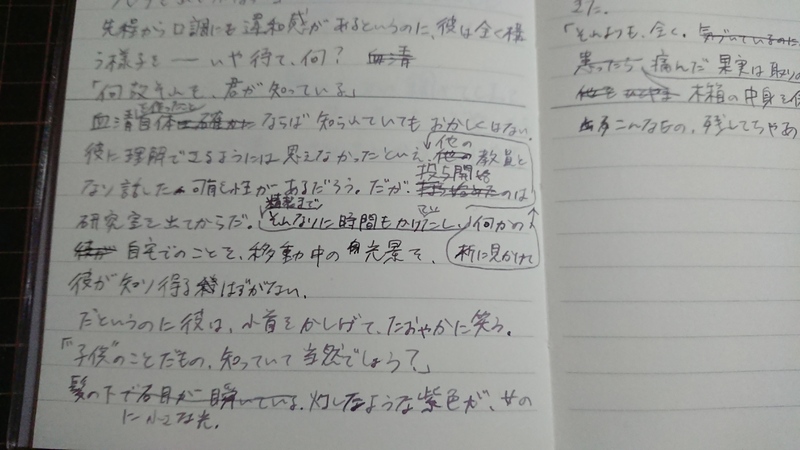 先程から口調にも違和感があるというのに、彼は全く構
う様子を――いや待て、何？ 血清
「何故そんも、君が知っている」
を使ったこと
血清自体ならば知られていてもおかしくはない。
彼に理解できるようには思えなかったといえ、他の教員と
投与開始
なり話した可能性があるだろう。だが、のは
精製まで
研究室を出てからだ。そんなりに時間もかけたし、何かの
自宅でのことを、移動中の光景を、折に見かけて
彼が知り得るはずがない。
だというのに彼は、小首をかしげて、たおやかに笑う。
「“子供”のことだもの、知っていて当然でしょう？」
髪の下で右目が瞬いている。灯したような紫色が、女の
に小さな光。
「そんも、全く。気づいているのに
痛んだ果実は取り
木箱の中身を
こんなもの、残してちゃあ